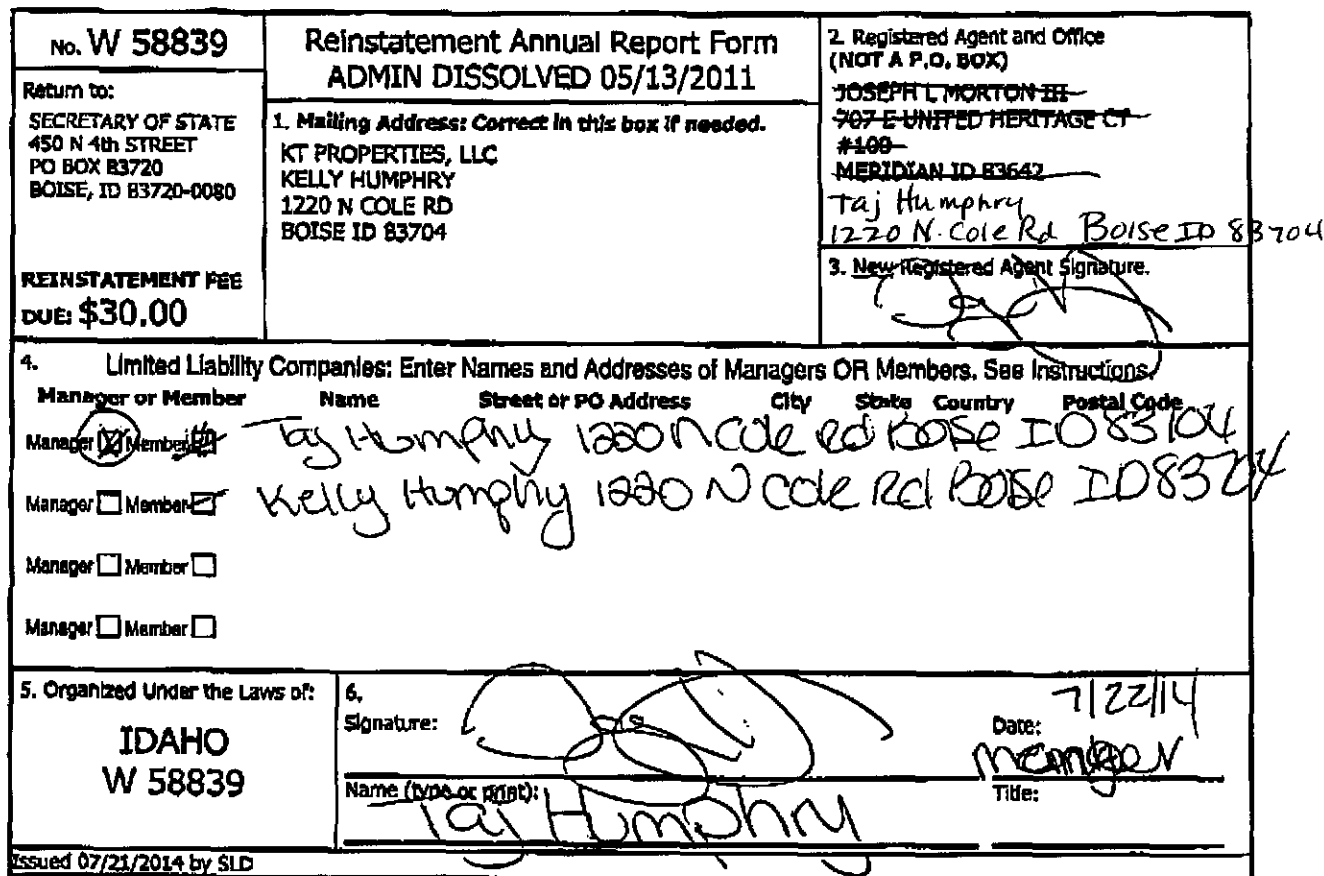 No. W 58839
Return to:
SECRETARY OF STATE
450 N 4th STREET
PO BOX 83720
BOISE, ID 83720-0080
REINSTATEMENT FEE
DUE: $30.00
Reinstatement Annual Report Form
ADMIN DISSOLVED 05/13/2011
1. Mailing Address: Correct in this box if needed.
KT PROPERTIES, LLC
KELLY HUMPHRY
1220 N COLE RD
BOISE ID 83704
2. Registered Agent and Office
(NOT A P.O. BOX)
JOSEPH L MORTON III
707 E UNITED HERITAGE CT
#100
MERIDIAN ID 83642
Taj Humphry
1220 N. Cole Rd Boise ID 83704
3. New Registered Agent Signature.
4. Limited Liability Companies: Enter Names and Addresses of Managers OR Members. See Instructions.
Manager or Member Name Street or PO Address City State Country Postal Code
Manager Member Taj Humphry 1220 N Cole Rd Boise ID 83704
Manager Member Kelly Humphry 1220 N Cole Rd Boise ID 83704
Manager Member
Manager Member
5. Organized Under the Laws of:
IDAHO
W 58839
6.
Signature:
Date: 7/22/14
Name (type or print): Taj Humphry
Title:
Issued 07/21/2014 by SLD